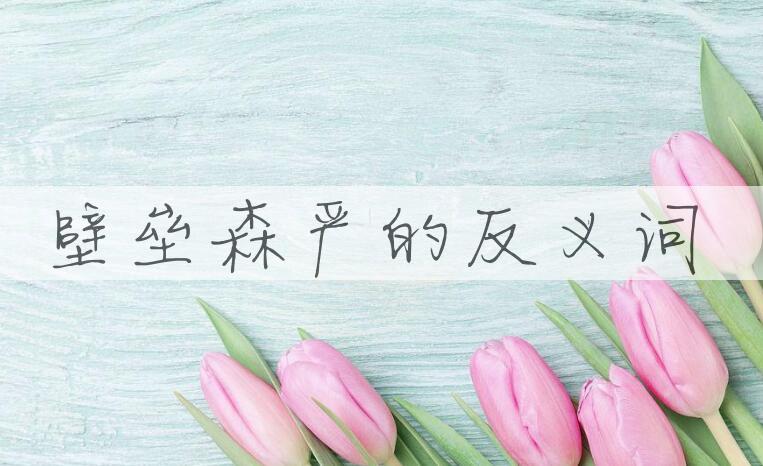 壁垒森严的反义词